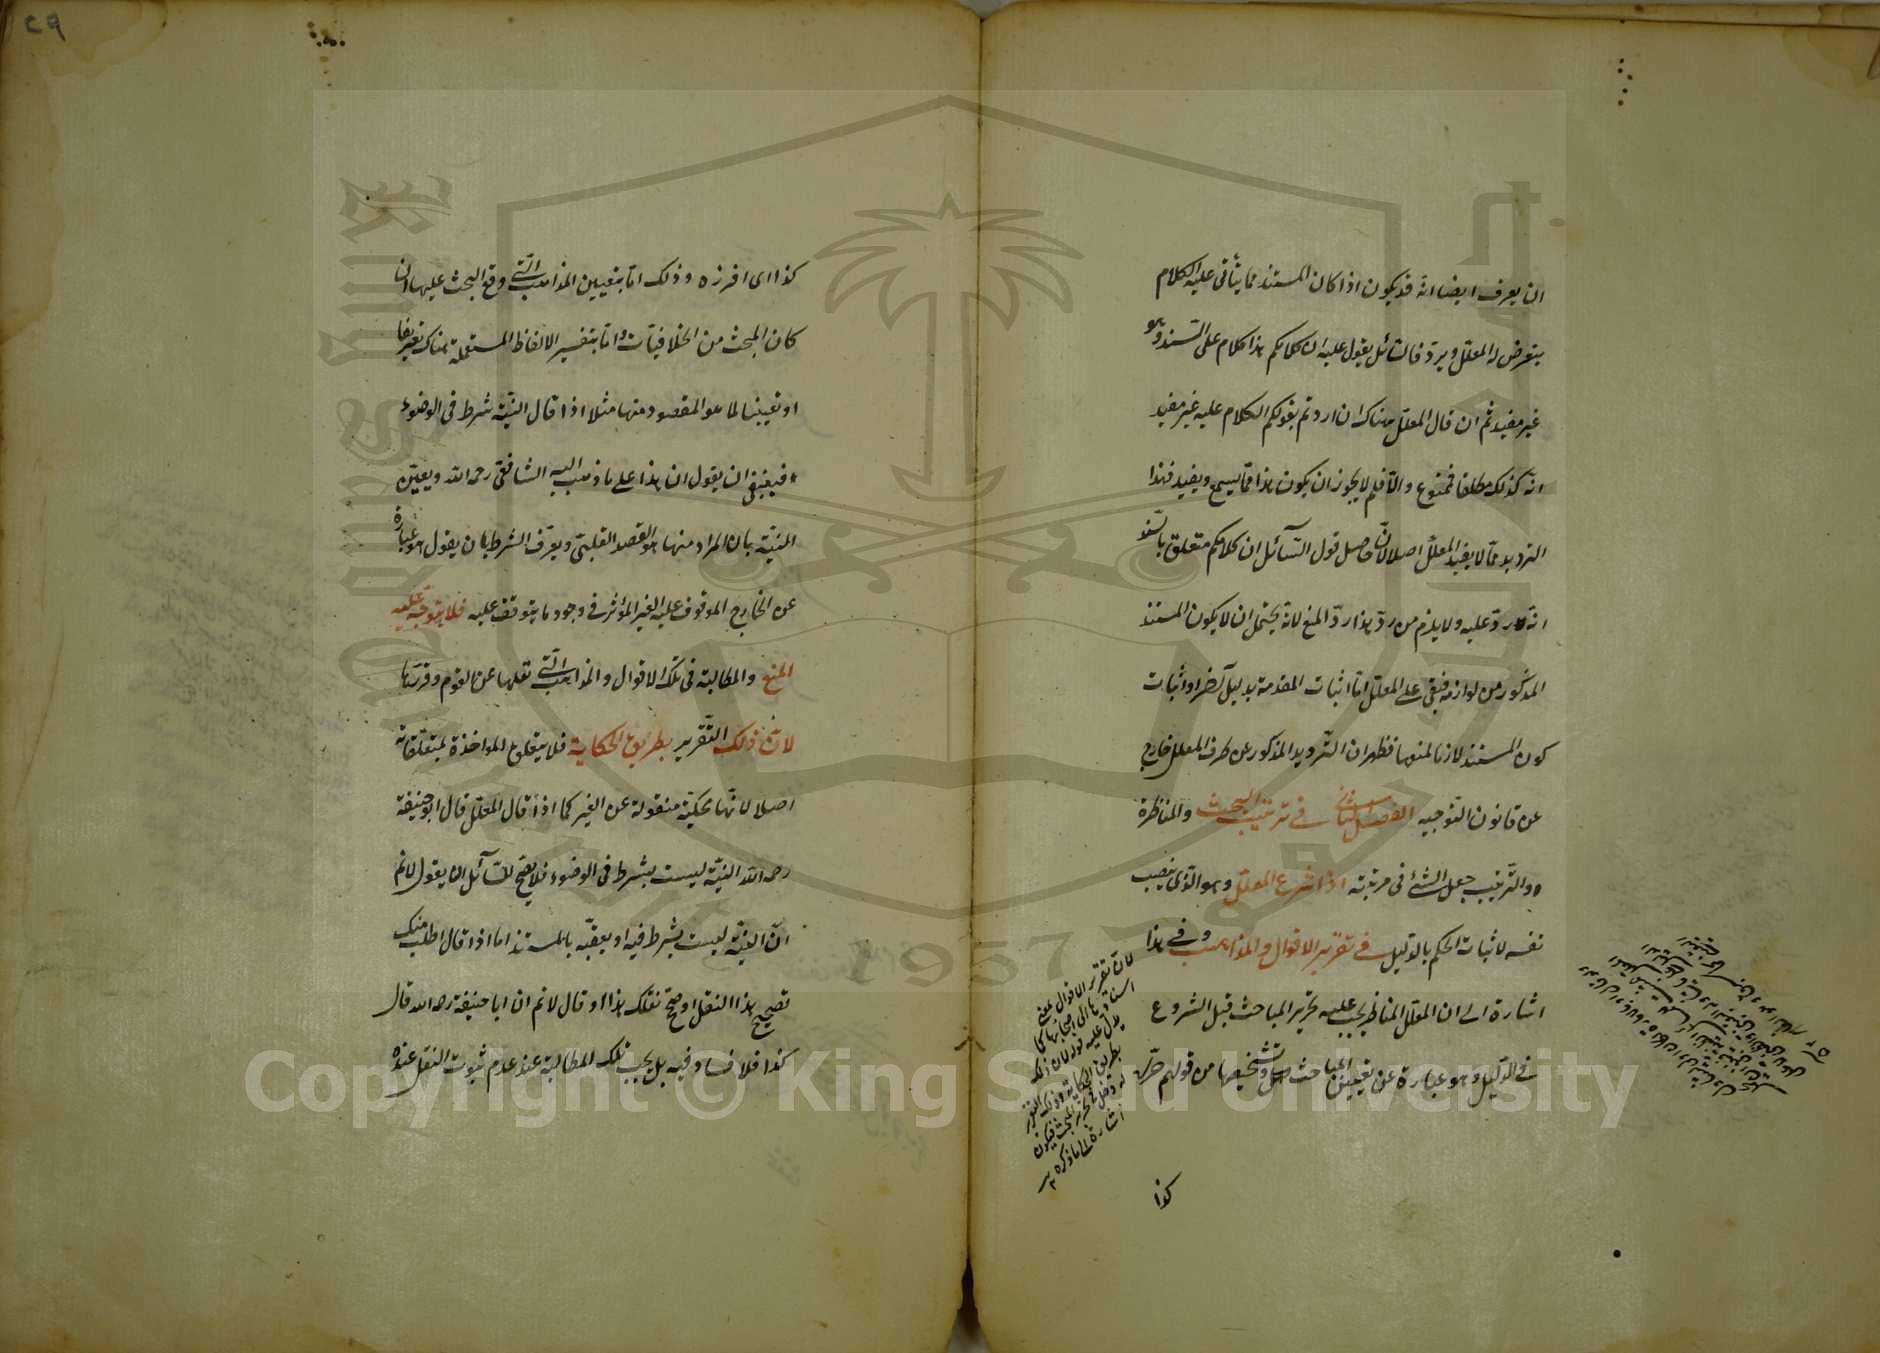 ان يعرف ايضا انه قد يكون اذا كان المستند مما يتأتى عليه الكلام
يتعرض له المعلل ويردّ فالسائل يقول عليه ان كلامكم هذا كلام على السند وهو
غير مفيد ثم ان قال المعلل هناك ان اردتم بقولكم الكلام عليه غير مفيد
انه كذلك مطلقا فممنوع والّا فلم لا يجوز ان يكون هذا مما يسمع ويفيد فهذا
الترديد مما لا يفيد المعلل اصلا لانّ حاصل قول السائل ان كلامكم متعلق بالسند
انه ردّ عليه ولا يلزم من ردّ هذا ردّ المنع لانه يحتمل ان لا يكون المستند
المذكور من لوازمه فبقى على المعلل اما اثبات المقدمة بدليل آخر او اثبات
كون المستند لازما لمنعها فظهر ان الترديد المذكور من طرف المعلل خارج
عن قانون التوجيه الفصل الثانى فى ترتيب البحث والمناظرة
والترتيب جعل الشئ فى مرتبته اذا شرع المعلل وهو الذى ينصب
نفسه لاثبات الحكم بالدليل فى تقرير الاقوال والمذاهب وفى هذا
اشارة الى ان المعلل المناظر يجب عليه تحرير المباحث قبل الشروع
فى الدليل وهو عبارة عن تعيين المباحث وتشخيصها من قولهم حرّر
لانّ تقرير الاقوال يعنى
اسنادها الى اصحابها كما
يدل عليه قوله لان ذلك
بطريق الحكاية وذلك التقرير
له دخل فى تحرير المبحث فيكون
اشارة الى ما ذكره
كذا
٢٩
كذا اى افرزه وذلك اما بتعيين المذاهب التى وقع البحث عليها ان
كان المبحث من الخلافيات واما بتفسير الالفاظ المستعملة هناك تعريفا
او تعيينا لما هو المقصود منها مثلا اذا قال النيّة شرط فى الوضوء
فينبغى ان يقول ان هذا على ما ذهب اليه الشافعى رحمه الله ويعيّن
النيّة بان المراد منها هو القصد القلبى ويعرّف الشرط بان يقول هو عبارة
عن الخارج الموقوف عليه الغير المؤثر فى وجود ما يتوقف عليه فلا يتوجّه عليه
المنع والمطالبة فى تلك الاقوال والمذاهب التى نقلها عن القوم وقررها
لانّ ذلك التقرير بطريق الحكاية فلا يتعلق المواخذة بمتعلقاته
اصلا لانها محكيّة منقولة عن الغير كما اذا قال المعلل قال ابو حنيفة
رحمه الله النيّة ليست بشرط فى الوضوء فلا يصح للسائل ان يقول لا نم
انّ النيّة ليست بشرط فيه او يعقبه بالمستند اما اذا قال اطلب منك
تصحيح هذا النقل او صحّح نقلك هذا او قال لا نم ان ابا حنيفة رحمه الله قال
كذا فلا فساد فيه بل يجب تلك المطالبة عند عدم ثبوت النقل عنده
Copyright © King Saud University
1957